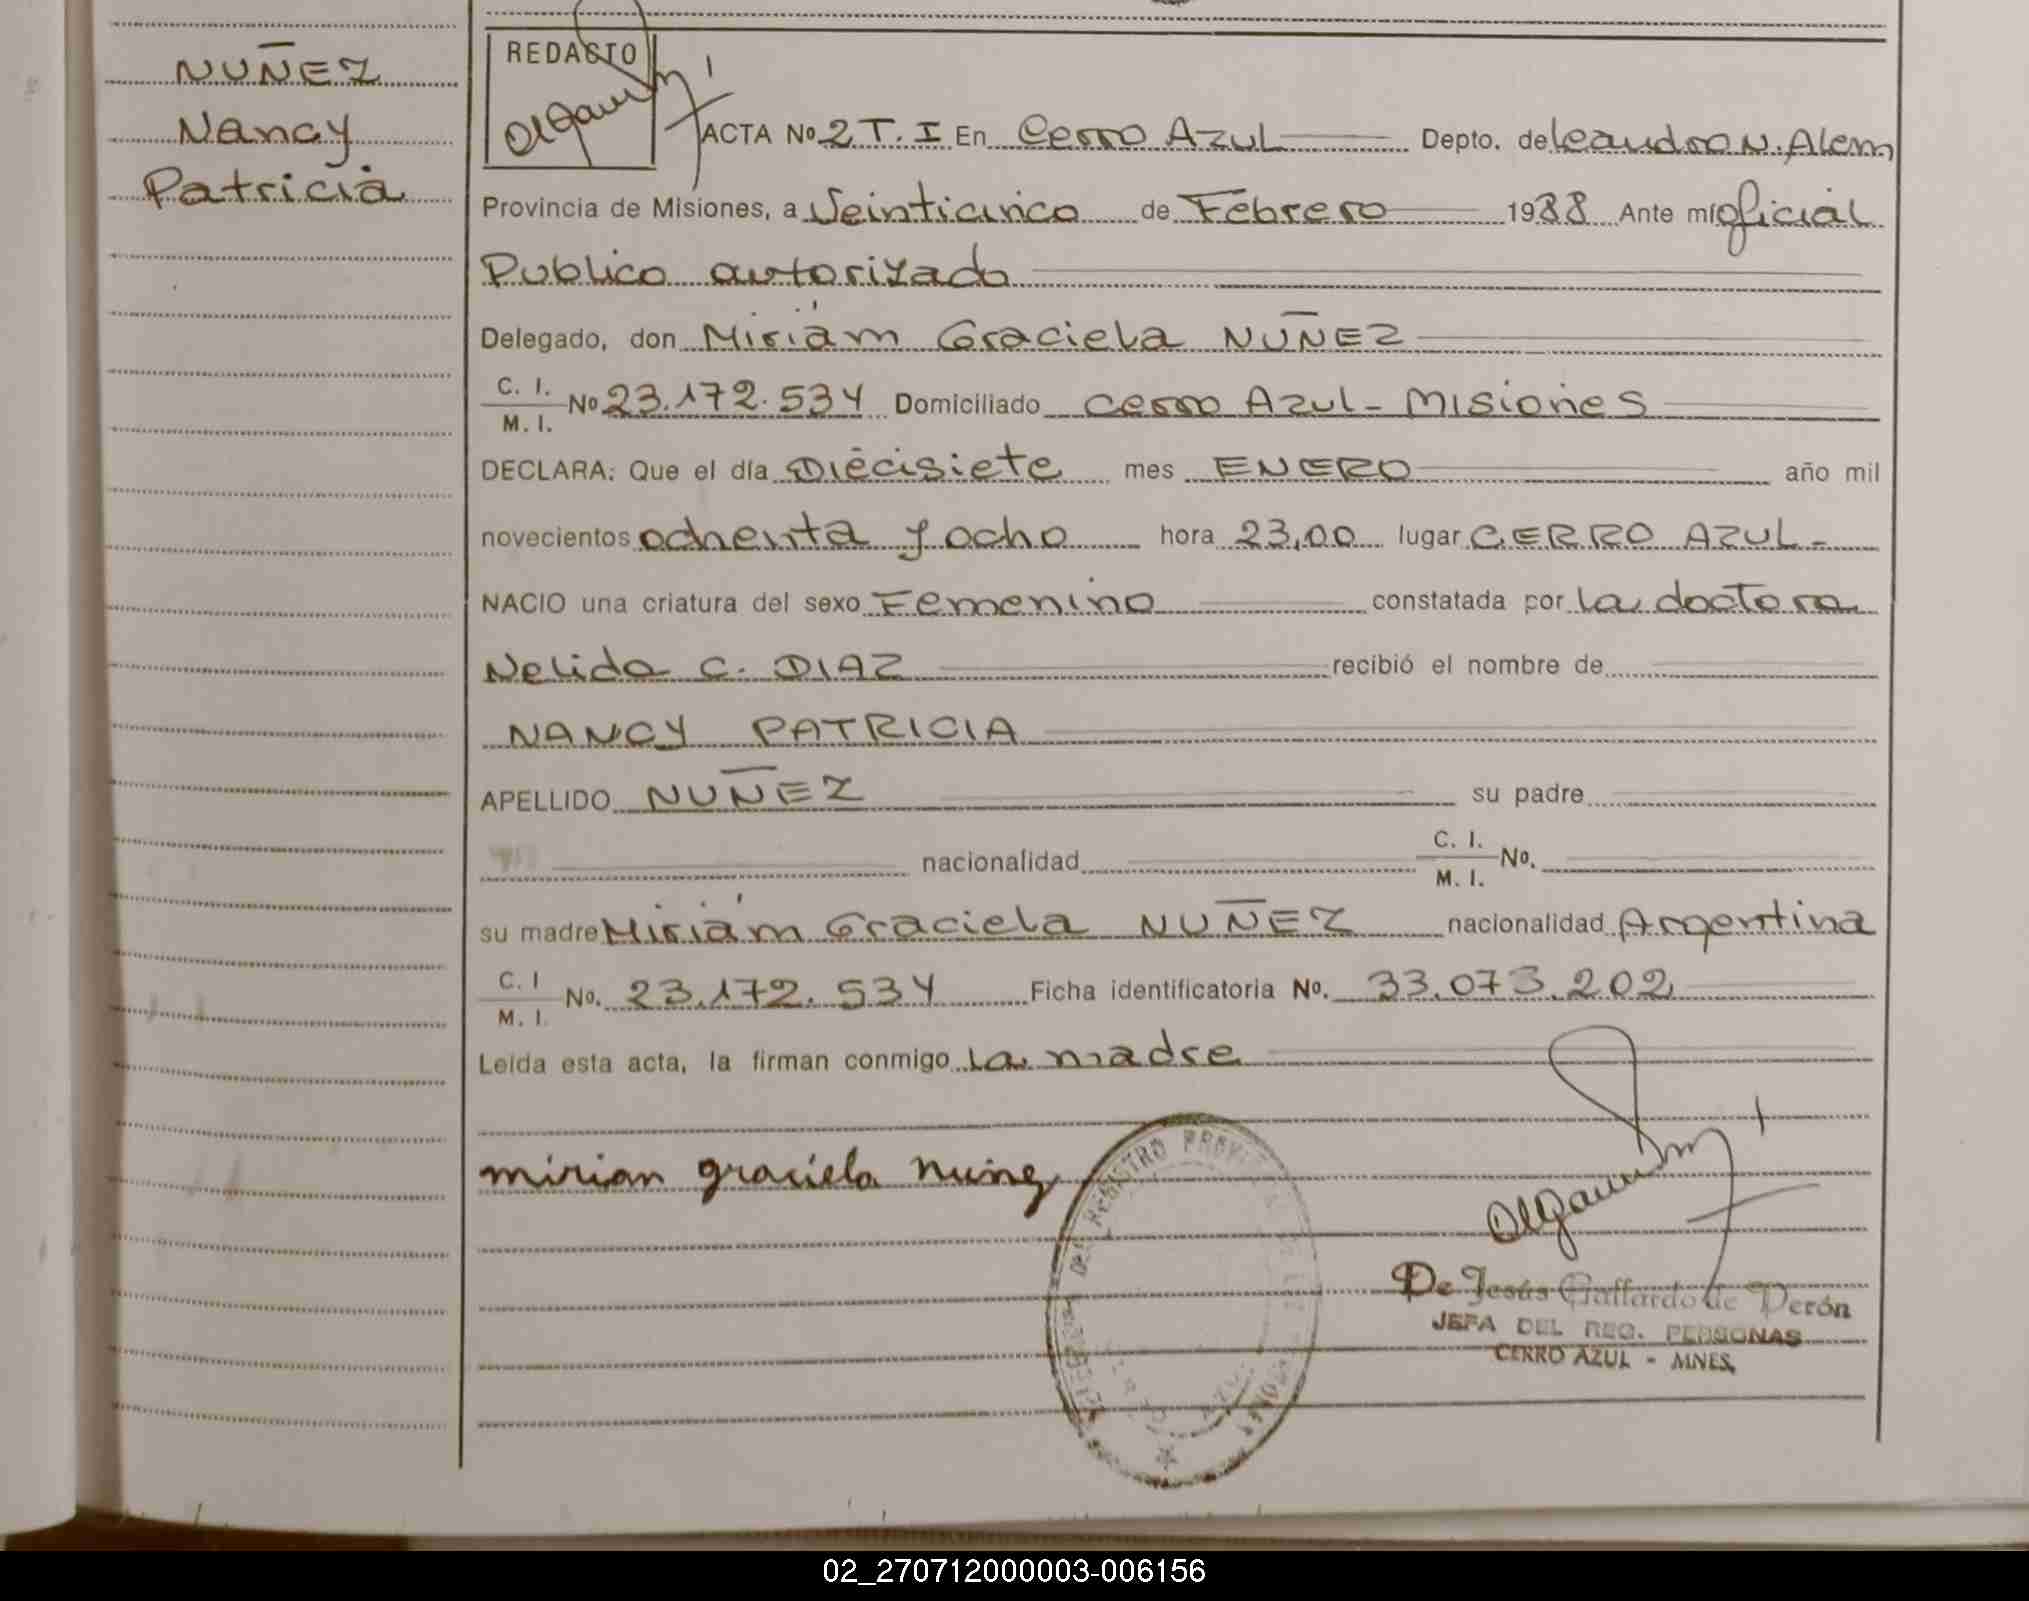 NUÑEZ
Nancy
Patricia
REDACTO
ACTA Nº 2 T. I En Cerro Azul Depto. de Leandro N. Alem
Provincia de Misiones, a Veinticinco de Febrero 1988 Ante mí oficial
Publico autorizado
Delegado, don Miriam Graciela NUÑEZ
C. I.
M. I. Nº 23.172.534 Domiciliado Cerro Azul - Misiones
DECLARA: Que el día Diecisiete mes ENERO año mil
novecientos ochenta y ocho hora 23,00 lugar CERRO AZUL -
NACIO una criatura del sexo Femenino constatada por la doctora
Nelida C. DIAZ recibió el nombre de
NANCY PATRICIA
APELLIDO NUÑEZ su padre
nacionalidad C. I. M. I. No.
su madre Miriam Graciela NUÑEZ nacionalidad Argentina
C. I
M. I. No. 23.172.534 Ficha identificatoria No. 33.073.202
Leída esta acta, la firman conmigo la madre
mirian graciela nuñez
De Jesús Gallardo de Perón
JEFA DEL REG. PERSONAS
CERRO AZUL - MNES.
02_270712000003-006156